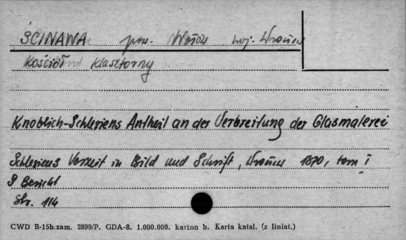 ŚCINAWA pow. Wołów woj. Wrocław
Kościół klasztorny
Knoblich-Schlesiens Antheil an der Verbreitung der Glasmalerei
Schlesiens Vorzeit in Bild und Schrift, Wrocław 1870, tom I
8 Bericht
Str. 114
CWD B-15b.zam. 2899/P. GDA-8. 1.000.000. karton b. Karta katal. (z liniat.)